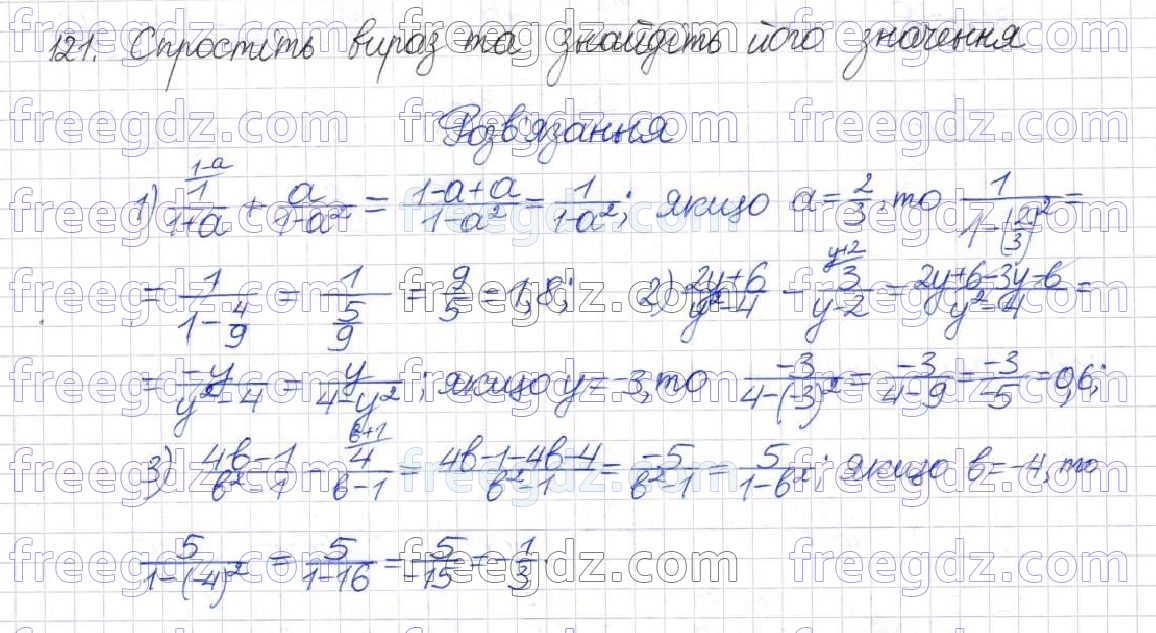 121. Спростіть вираз та знайдіть його значення
Розв'язання
1) 1/(1+a) (1-a) + a/(1-a²) = (1-a+a)/(1-a²) = 1/(1-a²); якщо a = 2/3, то 1/(1-(2/3)²) =
= 1/(1-4/9) = 1/(5/9) = 9/5 = 1,8; 2) (2y+6)/(y²-4) - 3/(y-2) (y+2) = (2y+6-3y-6)/(y²-4) =
= -y/(y²-4) = y/(4-y²); якщо y = -3, то -3/(4-(-3)²) = -3/(4-9) = -3/-5 = 0,6;
3) (4b-1)/(b²-1) - 4/(b-1) (b+1) = (4b-1-4b-4)/(b²-1) = -5/(b²-1) = 5/(1-b²); якщо b = -4, то
5/(1-(-4)²) = 5/(1-16) = 5/-15 = -1/3.
freegdz.com